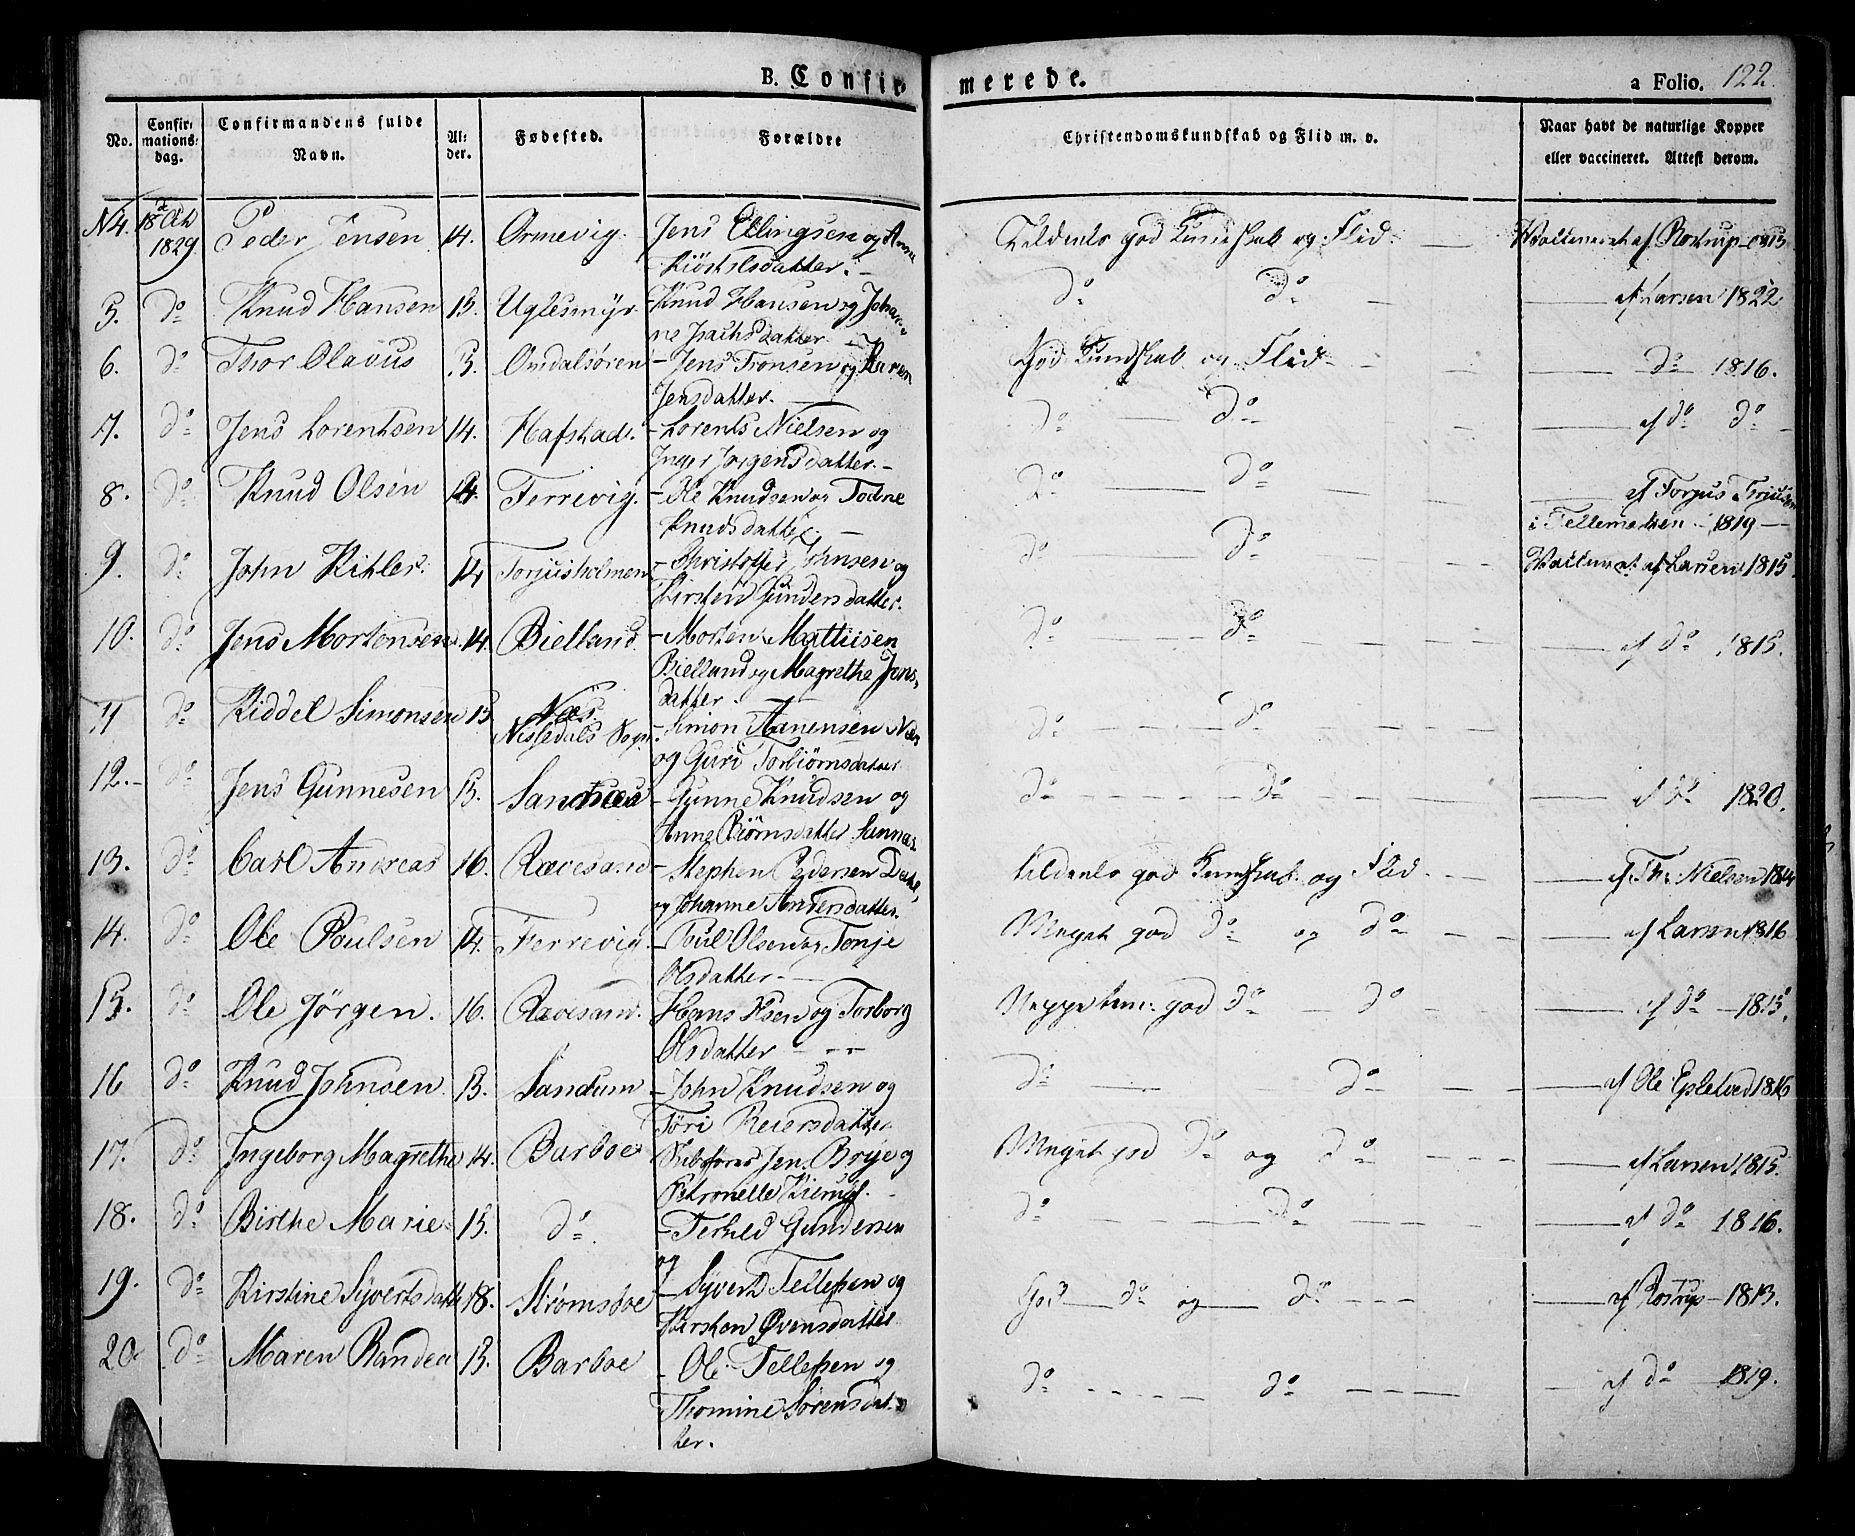 B. Confir- merede. a Folio. 122
No. Confirmationsdag. Confirmandens fulde Navn. Alder. Fødested. Forældre Christendomskundskab og Flid m. v. Naar havt de naturlige Kopper eller vaccineret. Attest derom.
N4. 18de Octb 1829 Peder Jensen 14. Ormevig. Jens Ellingsen og Anne god Kundskab og Flid. af Rostrup 1813
datter.
5. do Knud Hansen 15. Uglesmyr Knud Hansen og Johan- do do af Larsen 1822
ne datter.
6. do Thor Olavus 15. Omdalsören Jens Tronsen og Karen God Kundskab og Flid do 1816.
Jensdatter.
7. do Jens Lorentsen 14. Hafstad. Lorents Nielsen og do do af do do
Inger Jørgensdatter.
8. do Knud Olsen 14. Ferrevig. Ole Knudsen og Todne do do af Torjus
Knudsdatter i Tellemarken 1819
9. do John Kihler. 14 Torjusholmen Christoffer Johnsen og do do af Larsen 1815
Kirsten Gundersdatter.
10. do Jens Mortensen 14. Bielland. Morten Mattisen do do af do 1815.
Bielland og Magrethe Jens-
datter.
11 do Riddel Simonsen 15 Næs. Simon Aanensen Næs do do
Nissedals Sogn. og Guri Torbiörnsdatter
12. do Jens Gunnesen 15. Sandnæs Gunne Knudsen og do do af do 1820.
Anne Biörnsdatter Sannæs
13. do Carl Andreas 16. Rævesand Stephen Pedersen god Kundskab og Flid. af Th: Nielsen 1814
og Johanne Andersdatter.
14. do Ole Poulsen 14. Ferrevig Poul Olsen og Tonje Meget god do og do af Larsen 1816
Olsdatter
15. do Ole Jörgen. 16. Rævesand. Hans Olsen og Torborg god do do af do 1815.
Olsdatter
16 do Knud Johnsen 15. Sandum John Knudsen og do do af Ole Epletved 1816
Töri Reiersdatter
17. do Ingeborg Magrethe 14. Barboe Jens Boye og Meget god do og do af Larsen 1815.
Petronelle
18. do Birthe Marie 15. do Terkel Gundersen do do af do 1816.
og
19. do Kirstine Syvertsdatter 18. Strømsboe Syvert Tellefsen og God do og do af Rostrup 1813.
Kirsten Øvensdatter
20. do Maren Randea 15. Barboe Ole Tellefsen og do do af do 1819.
Thomine Sørensdat-
ter.